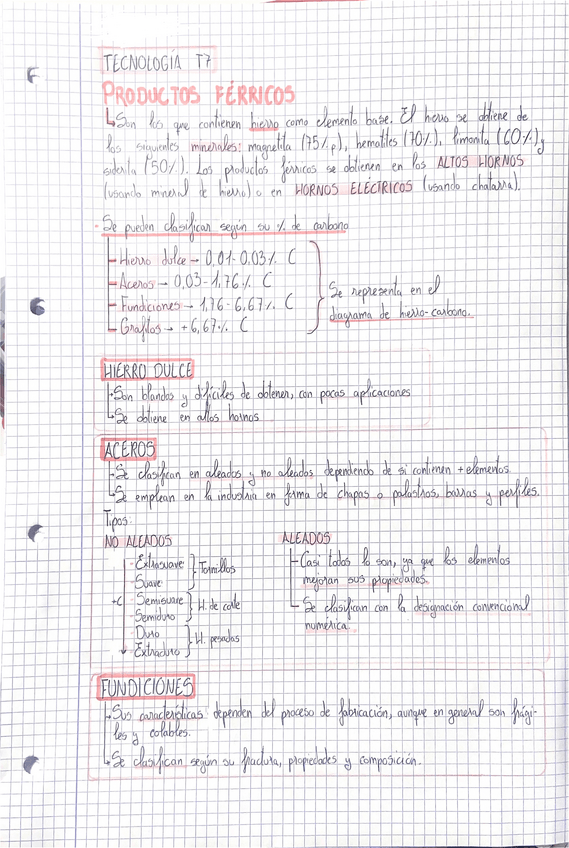 TECNOLOGÍA T7
PRODUCTOS FÉRRICOS
↳ Son los que contienen hierro como elemento base. El hierro se obtiene de
los siguientes minerales: magnetita (75%), hematites (70%), limonita (60%) y
siderita (50%). Los productos férricos se obtienen en los ALTOS HORNOS
(usando mineral de hierro) o en HORNOS ELÉCTRICOS (usando chatarra).
- Se pueden clasificar según su % de carbono
Hierro dulce → 0,01-0,03% C
Aceros → 0,03-1,76% C
Fundiciones → 1,76-6,67% C
Grafitos → +6,67% C
Se representa en el
diagrama de hierro-carbono.
HIERRO DULCE
Son blandos y difíciles de obtener, con pocas aplicaciones
Se obtiene en altos hornos
ACEROS
Se clasifican en aleados y no aleados dependiendo de si contienen + elementos.
Se emplean en la industria en forma de chapas o palastros, barras y perfiles.
Tipos:
NO ALEADOS
+C
Extrasuave
Suave
Tornillos
Semisuave
Semiduro
H. de corte
Duro
Extraduro
H. pesadas
ALEADOS
Casi todos lo son, ya que los elementos
mejoran sus propiedades.
Se clasifican con la designación convencional
numérica.
FUNDICIONES
Sus características dependen del proceso de fabricación, aunque en general son frági-
les y colables.
Se clasifican según su fractura, propiedades y composición.